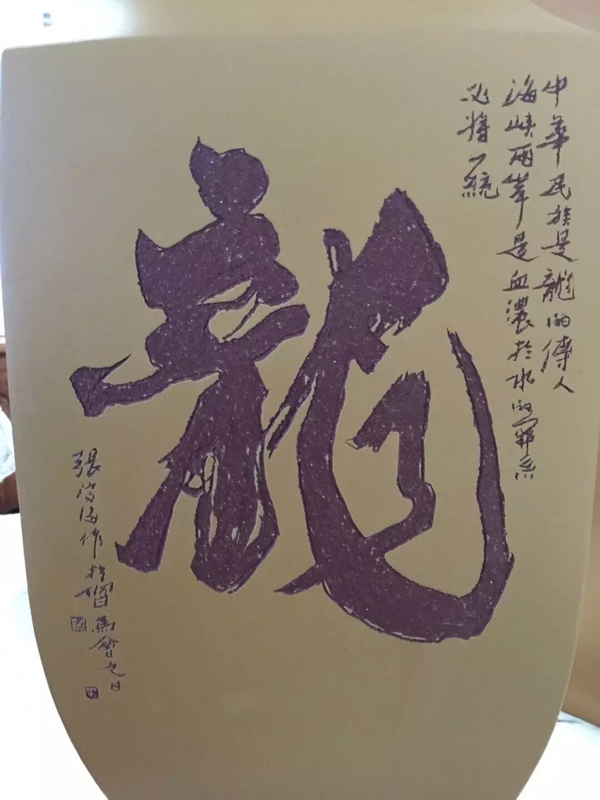 中華民族是龍的傳人
海峽兩岸是血濃於水的關系
必將一統
龍
張 作於習馬會之日